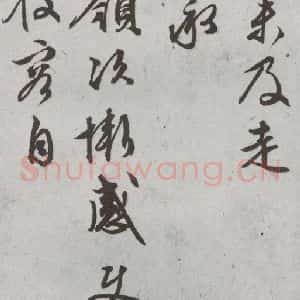 未及走
承
領次慚感
容自
Shufawang.CN